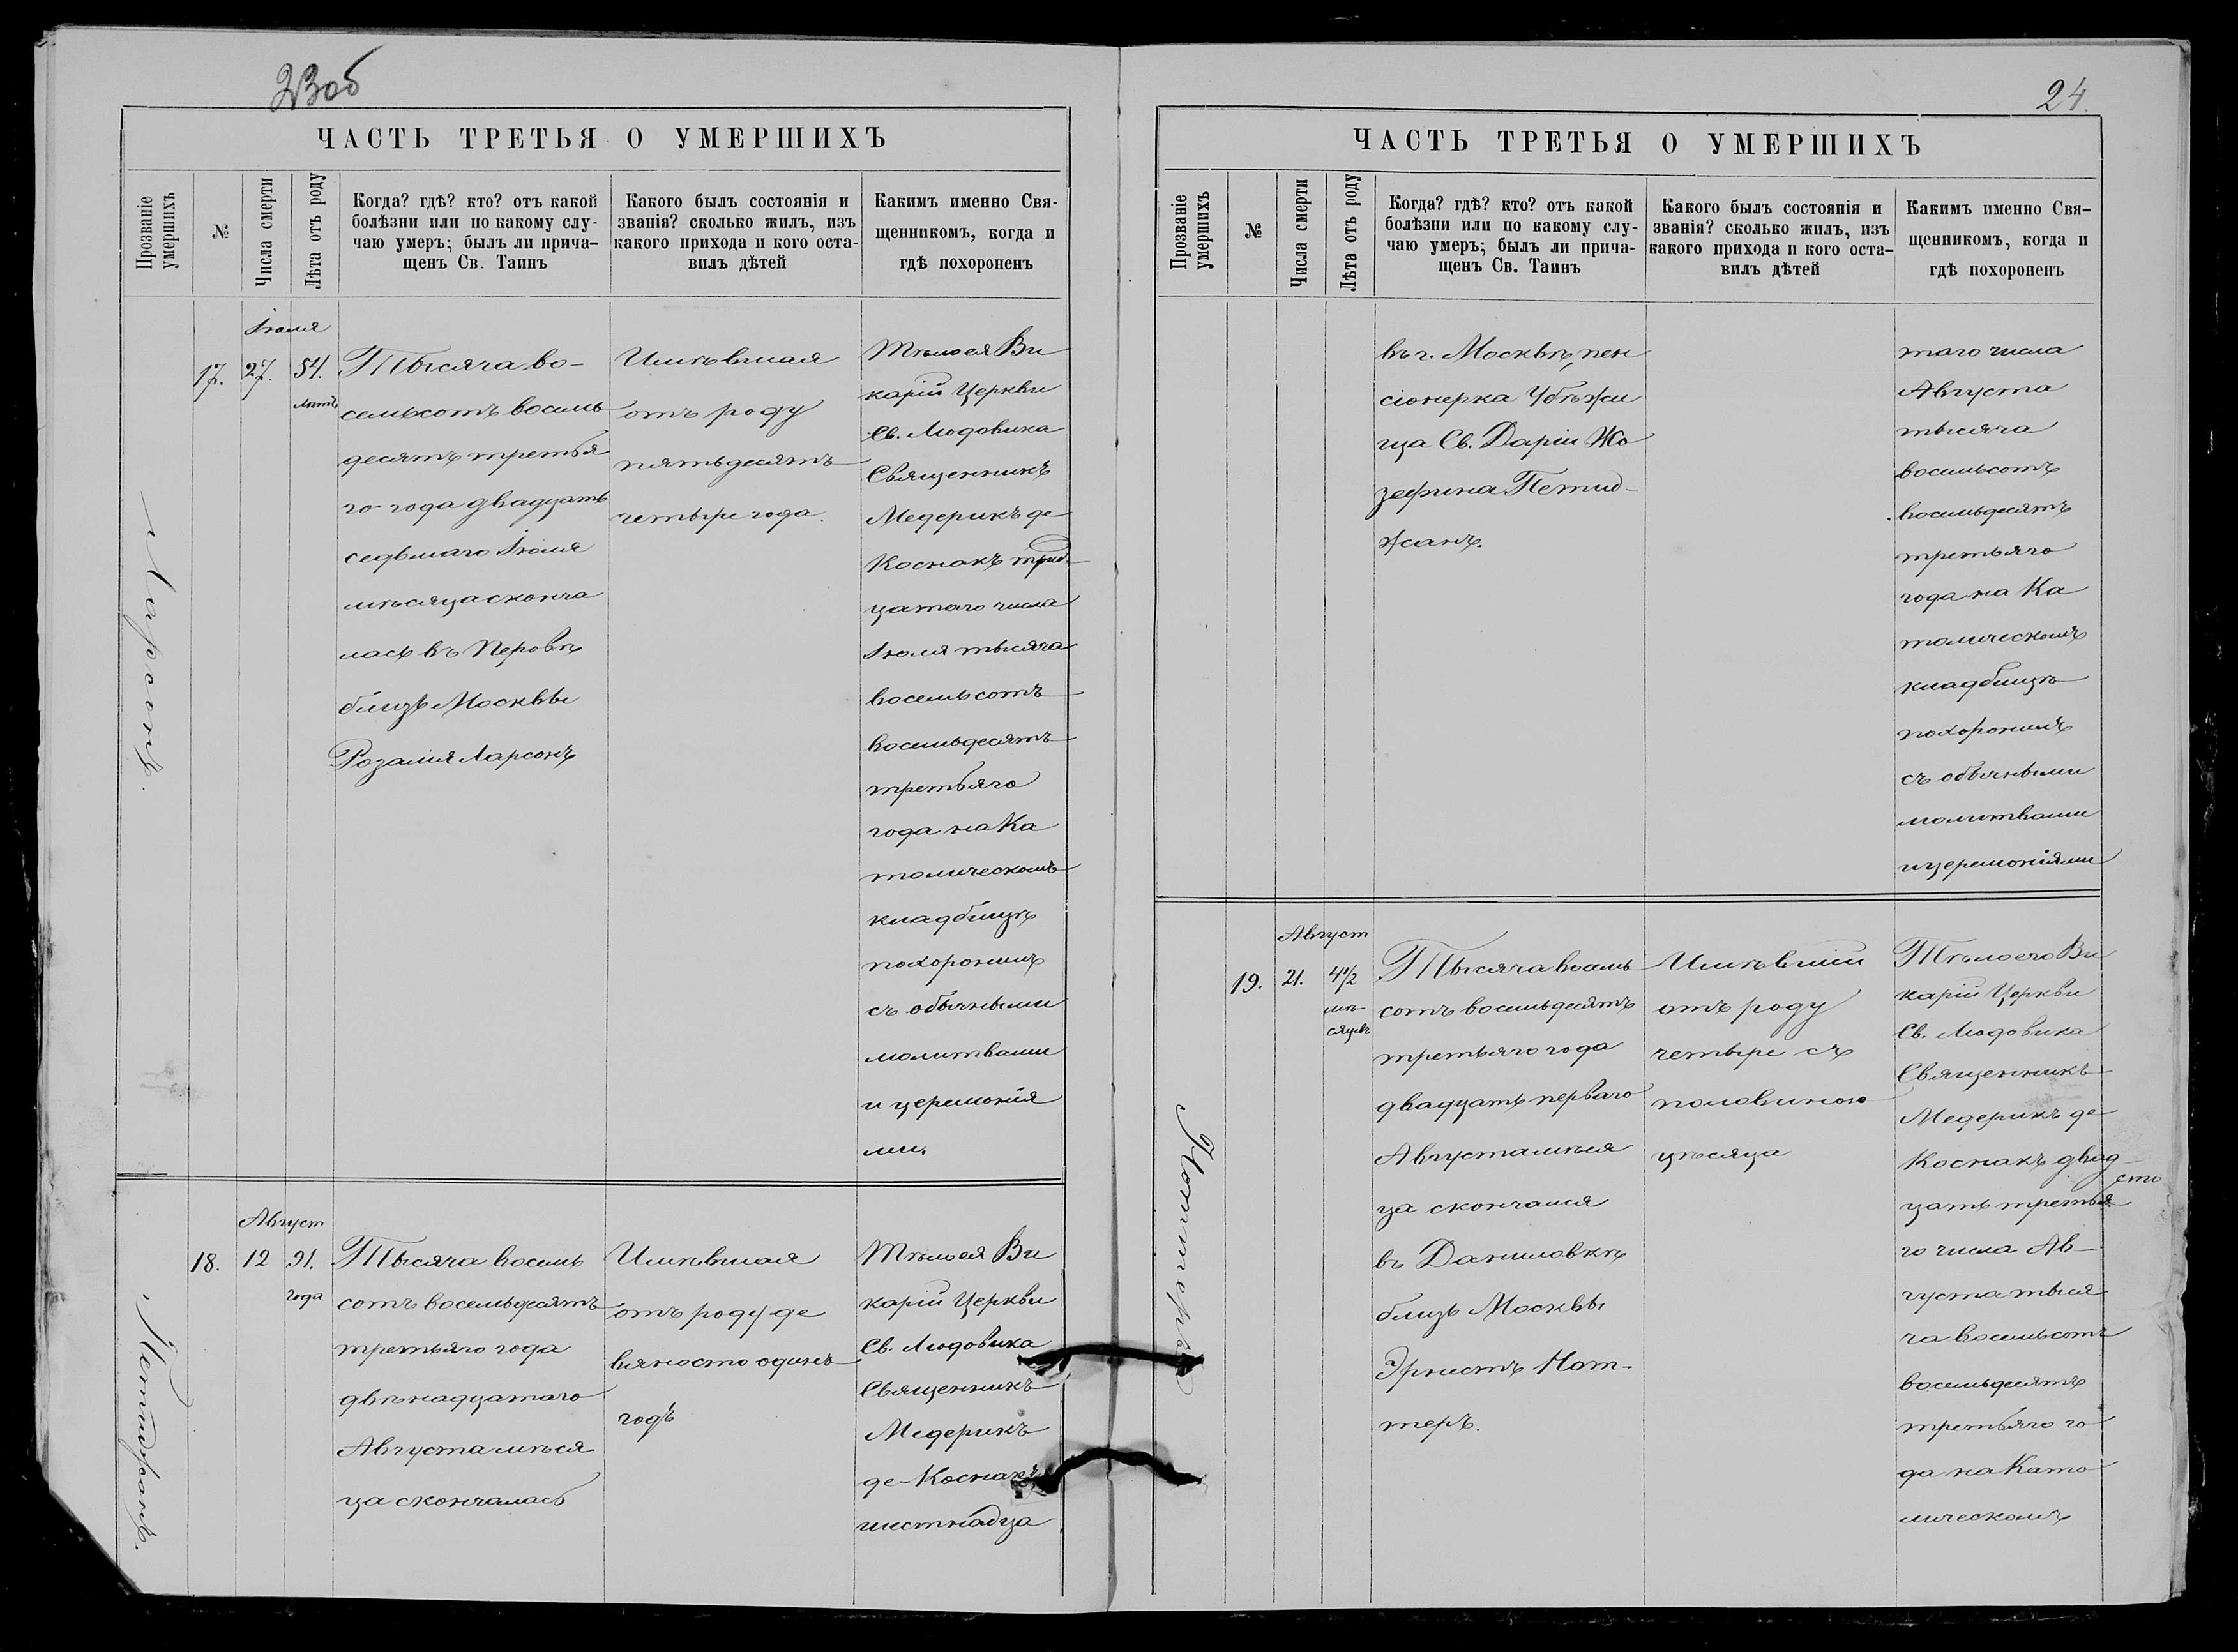 23об
ЧАСТЬ ТРЕТЬЯ О УМЕРШИХЪ
Прозваніе умершихъ
№
Числа смерти
Лѣта отъ роду
Когда? гдѣ? кто? отъ какой
болѣзни или по какому слу-
чаю умеръ; былъ ли прича-
щенъ Св. Таинъ
Какого былъ состоянія и
званія? сколько жилъ, изъ
какого прихода и кого оста-
вилъ дѣтей
Какимъ именно Свя-
щенникомъ, когда и
гдѣ похороненъ
Ларсонъ.
17.
Іюля
27.
54.
лѣтъ
Тысяча во-
семьсотъ восемь
десятъ третья
го года двадцать
седьмаго Іюля
мѣсяца сконча
лась въ Перовѣ
близь Москвы
Розалія Ларсонъ
Имѣвшая
отъ роду
пятьдесятъ
четыре года.
Тѣло ея Ви
карій Церкви
Св. Людовика
Священникъ
Медерикъ де
Коснакъ трид-
цатаго числа
Іюля тысяча
восемьсотъ
восемьдесятъ
третьяго
года на Ка
толическомъ
кладбищѣ
похоронилъ
съ обычными
молитвами
и церемонія
ми.
Петиджанъ.
18.
Август
12
91.
года
Тысяча восемь
сотъ восемьдесятъ
третьяго года
двѣнадцатаго
Августа мѣся
ца скончалась
Имѣвшая
отъ роду де
вяносто одинъ
годъ
Тѣло ея Ви
карій Церкви
Св. Людовика
Священникъ
Медерикъ
де-Коснакъ
шестнадца
24.
ЧАСТЬ ТРЕТЬЯ О УМЕРШИХЪ
Прозваніе умершихъ
№
Числа смерти
Лѣта отъ роду
Когда? гдѣ? кто? отъ какой
болѣзни или по какому слу-
чаю умеръ; былъ ли прича-
щенъ Св. Таинъ
Какого былъ состоянія и
званія? сколько жилъ, изъ
какого прихода и кого оста-
вилъ дѣтей
Какимъ именно Свя-
щенникомъ, когда и
гдѣ похороненъ
въ г. Москвѣ, пен
сіонерка Убѣжи
ща Св. Даріи Жо
зефина Петид-
жанъ.
таго числа
Августа
тысяча
восемьсотъ
восемьдесятъ
третьяго
года на Ка
толическомъ
кладбищѣ
похоронилъ
съ обычными
молитвами
и церемоніями
19.
Август
21.
4 1/2
мѣ-
сяцевъ
Тысяча восемь
сотъ восемьдесятъ
третьяго года
двадцать перваго
Августа мѣся
ца скончался
въ Даниловкѣ
близь Москвы
Эрнестъ Нот-
теръ.
Имѣвшій
отъ роду
четыре съ
половиною
мѣсяца
Тѣло его Ви
карій Церкви
Св. Людовика
Священникъ
Медерикъ де
Коснакъ двад
цать третья
го числа Ав-
густа тыся
ча восемьсотъ
восемьдесятъ
третьяго го
да на Като
лическомъ